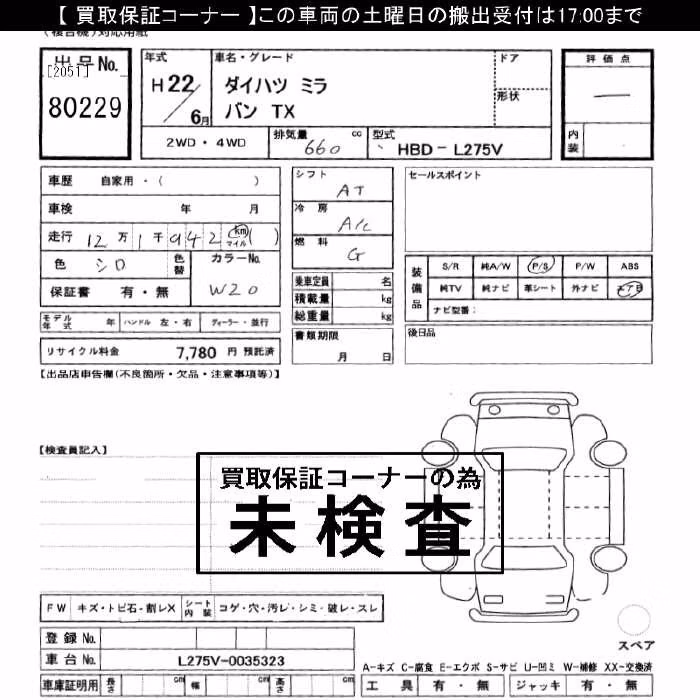 【 買取保証コーナー 】この車両の土曜日の搬出受付は17:00まで
(複合機)対応用紙
出品No.
[2051]
80229
年式
H22/6月
車名・グレード
ダイハツ ミラ
バン TX
ドア
形状
評価点
—
内装
2WD・4WD
排気量 660 cc
型式 HBD-L275V
車歴 自家用・( )
車検 年 月
走行 12万1千942 km マイル ( )
色 シロ
色替
カラーNo. W20
保証書 有・無
シフト AT
冷房 A/C
燃料 G
乗車定員 名
積載量 kg
総重量 kg
書類期限 月 日
セールスポイント
装備品
S/R 純A/W P/S P/W ABS
純TV 純ナビ 革シート 外ナビ エアB
ナビ型番:
後日品
モデル年式 年 ハンドル 左・右 ディーラー・並行
リサイクル料金 7,780 円 預託済
【出品店申告欄(不良箇所・欠品・注意事項等)】
【検査員記入】
買取保証コーナーの為
未検査
FW キズ・トビ石・割レX シート内装 コゲ・穴・汚レ・シミ・破レ・スレ
登録 No.
車台 No. L275V-0035323
車庫証明用 長さ cm 幅 cm 高さ cm
スペア
A-キズ C-腐食 E-エクボ S-サビ U-凹ミ W-補修 XX-交換済
工具 有・無 ジャッキ 有・無